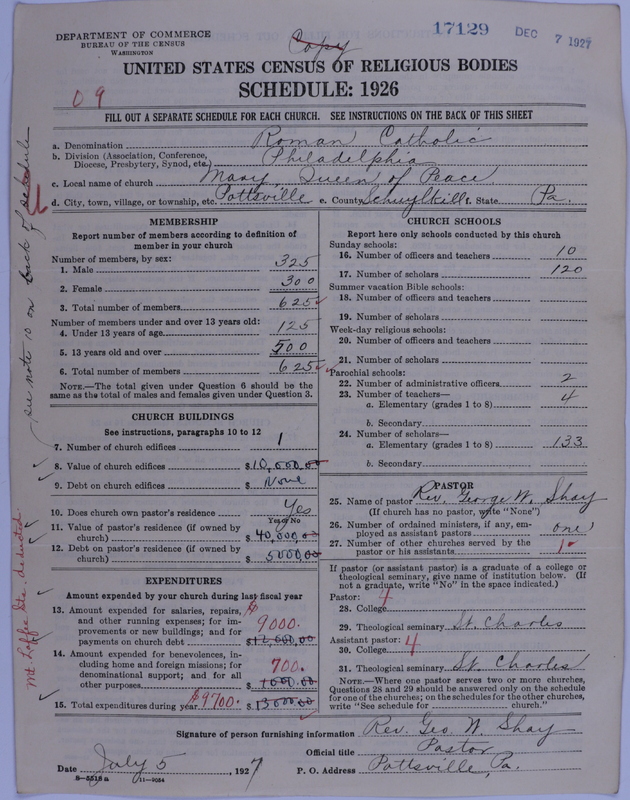 DEPARTMENT OF COMMERCE
BUREAU OF THE CENSUS
WASHINGTON
Copy
17129
DEC 7 1927
UNITED STATES CENSUS OF RELIGIOUS BODIES
SCHEDULE: 1926
09
FILL OUT A SEPARATE SCHEDULE FOR EACH CHURCH. SEE INSTRUCTIONS ON THE BACK OF THIS SHEET
a. Denomination Roman Catholic
b. Division (Association, Conference, Diocese, Presbytery, Synod, etc.) Philadelphia
c. Local name of church Mary, Queen of Peace
d. City, town, village, or township, etc. Pottsville e. County Schuylkill f. State Pa.
see note 10 on back of schedule
MEMBERSHIP
Report number of members according to definition of
member in your church
Number of members, by sex:
1. Male 325
2. Female 300
3. Total number of members 625
Number of members under and over 13 years old:
4. Under 13 years of age 125
5. 13 years old and over 500
6. Total number of members 625
NOTE.—The total given under Question 6 should be
same as the total of males and females given under Question 3.
CHURCH BUILDINGS
See instructions, paragraphs 10 to 12
7. Number of church edifices 1
8. Value of church edifices $10,000.00
9. Debt on church edifices $ None
10. Does church own pastor's residence Yes
Yes or No
11. Value of pastor's residence (if owned by
church) $ 40,000.00
12. Debt on pastor's residence (if owned by
church) $ 5000.00
EXPENDITURES
Amount expended by your church during last fiscal year
13. Amount expended for salaries, repairs, $
and other running expenses; for im- 9000.
provements or new buildings; and for
payments on church debt $12,000.00
14. Amount expended for benevolences, in-
cluding home and foreign missions; for 700.
denominational support; and for all
other purposes $ 1000.00
15. Total expenditures during year $9700. $13000.00
deducted
CHURCH SCHOOLS
Report here only schools conducted by this church
Sunday schools:
16. Number of officers and teachers 10
17. Number of scholars 120
Summer vacation Bible schools:
18. Number of officers and teachers
19. Number of scholars
Week-day religious schools:
20. Number of officers and teachers
21. Number of scholars
Parochial schools:
22. Number of administrative officers 2
23. Number of teachers—
a. Elementary (grades 1 to 8) 4
b. Secondary
24. Number of scholars—
a. Elementary (grades 1 to 8) 133
b. Secondary
PASTOR
25. Name of pastor Rev. George W. Shay
(If church has no pastor, write "None")
26. Number of ordained ministers, if any, em-
ployed as assistant pastors one
27. Number of other churches served by the
pastor or his assistants 1
If pastor (or assistant pastor) is a graduate of a college or
theological seminary, give name of institution below. (If
not a graduate, write "No" in the space indicated.)
Pastor: 4
28. College
29. Theological seminary St. Charles
Assistant pastor: 4
30. College
31. Theological seminary St. Charles
NOTE.—Where one pastor serves two or more churches,
Questions 28 and 29 should be answered only on the schedule
for one of the churches; on the schedules for the other churches,
write "See schedule for church."
Signature of person furnishing information Rev. Geo. W. Shay
Official title Pastor
Date July 5, 1927 P. O. Address Pottsville, Pa.
8—5518 a 11—9054